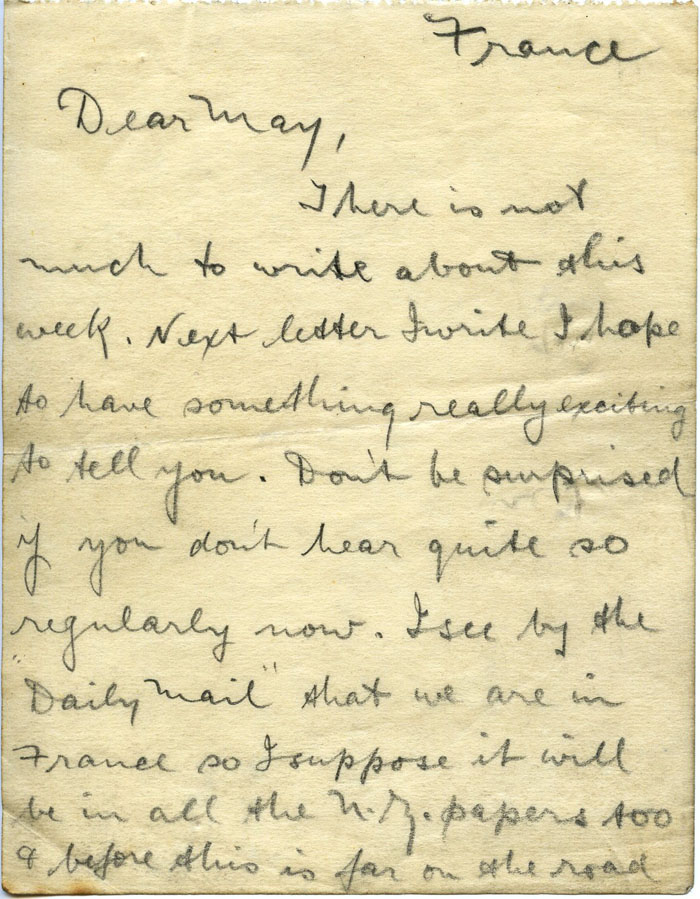 France
Dear May,
There is not
much to write about this
week. Next letter I write I hope
to have something really exciting
to tell you. Don't be surprised
if you don't hear quite so
regularly now. I see by the
"Daily Mail" that we are in
France so I suppose it will
be in all the N.Z. papers too
& before this is far on the road